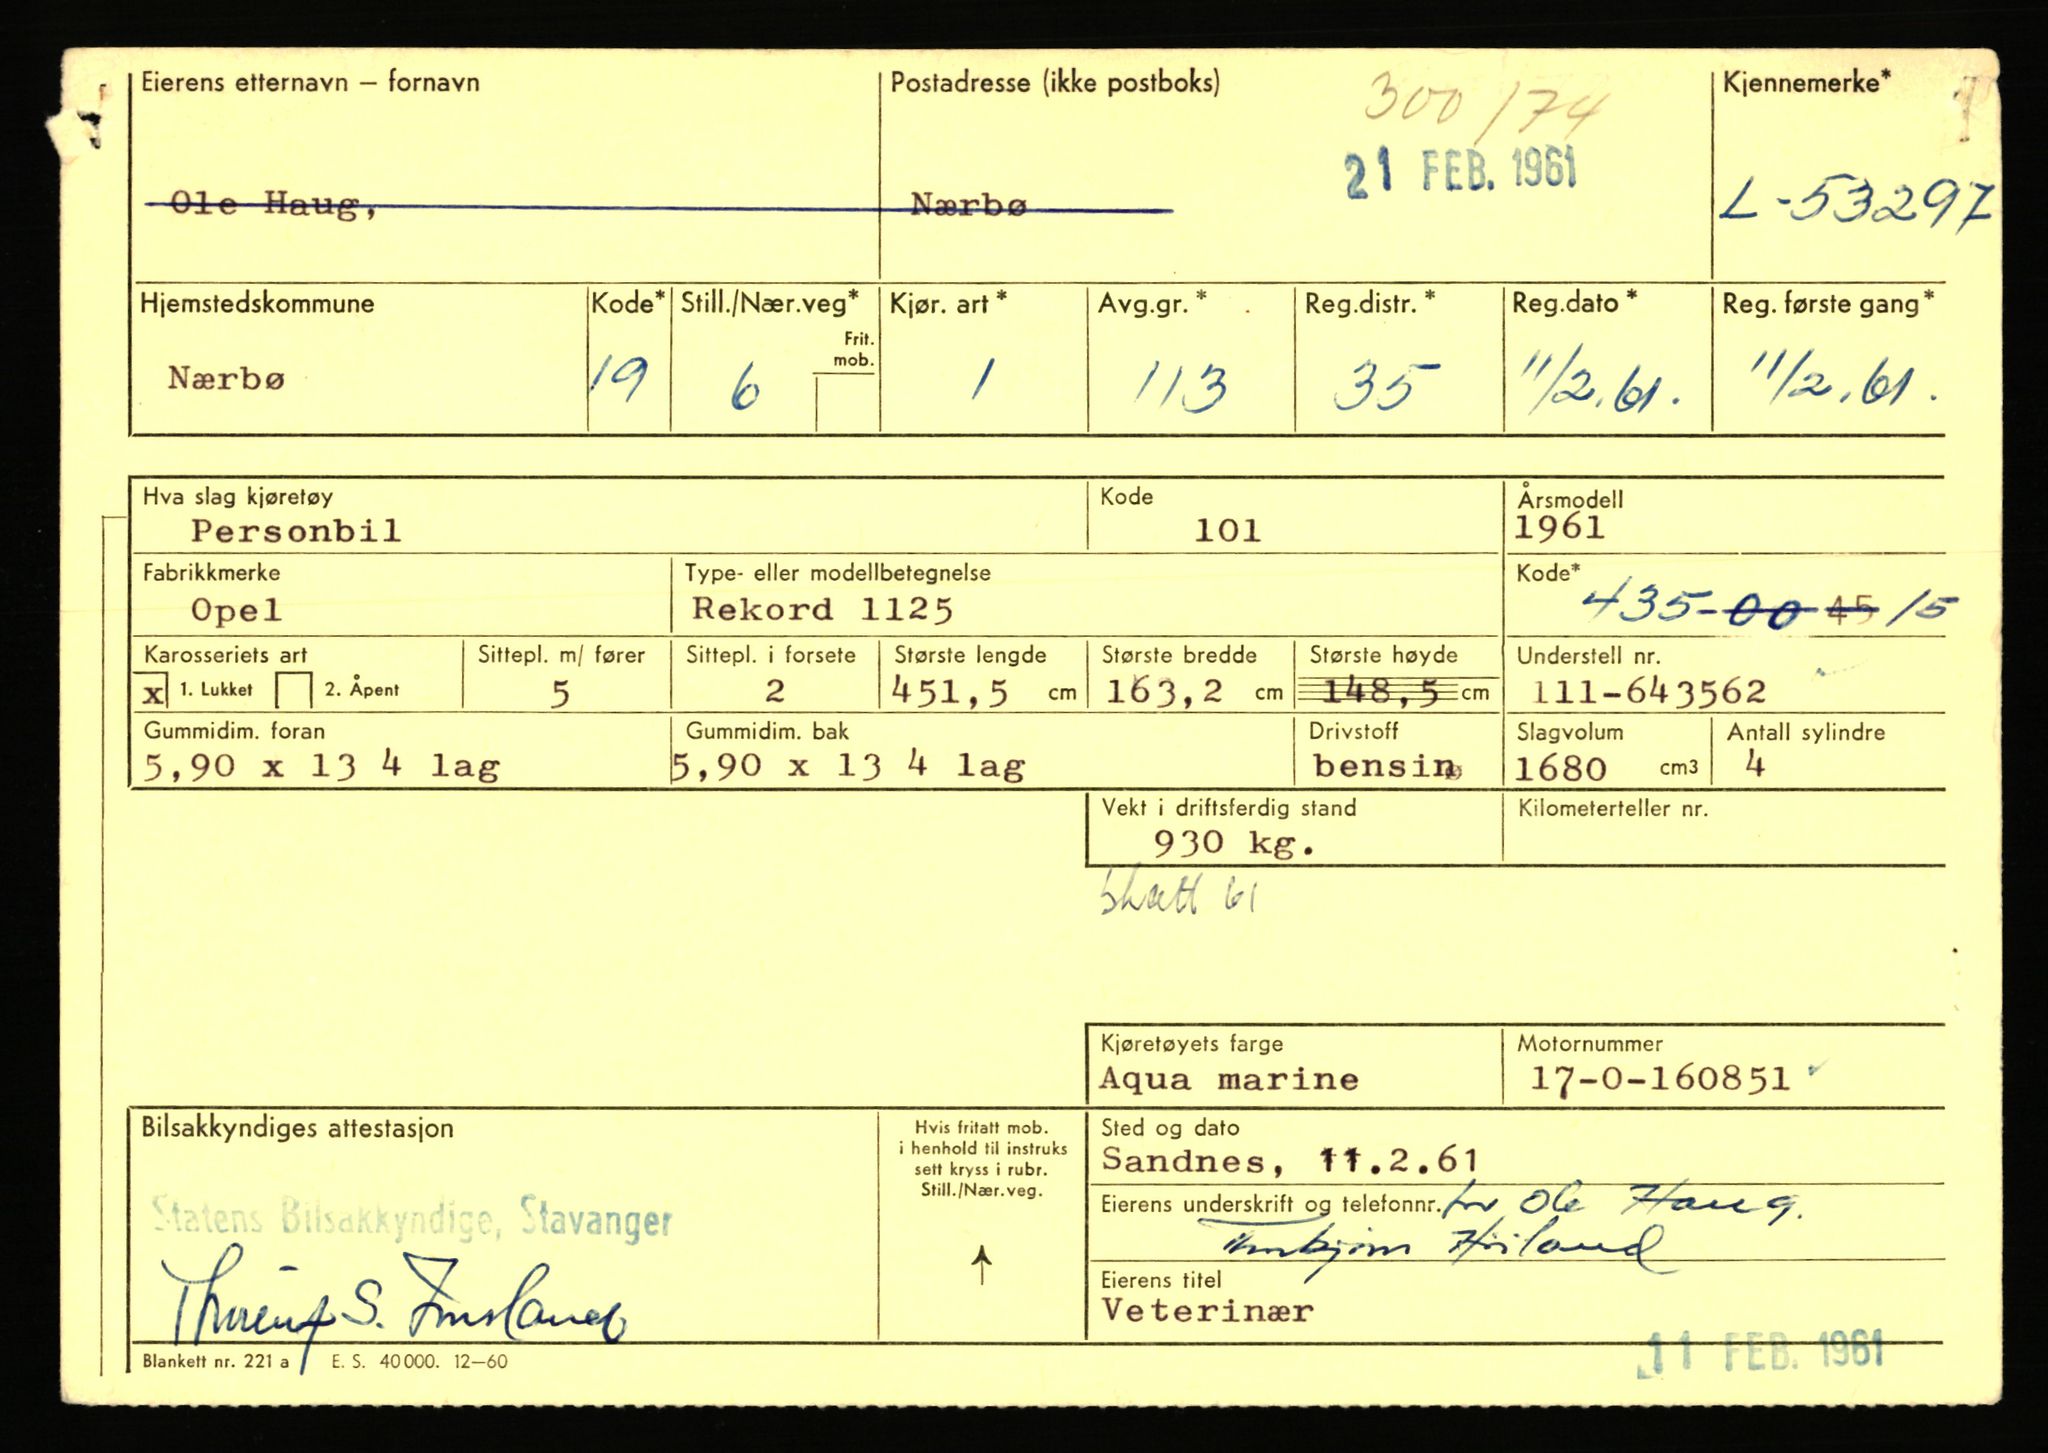 Eierens etternavn – fornavn
Postadresse (ikke postboks)
300/74
Kjennemerke*
21 FEB. 1961
Ole Haug,
Nærbø
L-53297
Hjemstedskommune
Kode*
Still./Nær.veg*
Frit. mob.
Kjør. art*
Avg.gr.*
Reg.distr.*
Reg.dato*
Reg. første gang*
Nærbø
19
6
1
113
35
11/2.61.
11/2.61.
Hva slag kjøretøy
Personbil
Kode
101
Årsmodell
1961
Fabrikkmerke
Opel
Type- eller modellbetegnelse
Rekord 1125
Kode*
435-00 45 15
Karosseriets art
x 1. Lukket 2. Åpent
Sittepl. m/ fører
5
Sittepl. i forsete
2
Største lengde
451,5 cm
Største bredde
163,2 cm
Største høyde
148,5 cm
Understell nr.
111-643562
Gummidim. foran
5,90 x 13 4 lag
Gummidim. bak
5,90 x 13 4 lag
Drivstoff
bensin
Slagvolum
1680 cm3
Antall sylindre
4
Vekt i driftsferdig stand
930 kg.
Kilometerteller nr.
Skatt 61
Kjøretøyets farge
Aqua marine
Motornummer
17-0-160851
Bilsakkyndiges attestasjon
Hvis fritatt mob.
i henhold til instruks
sett kryss i rubr.
Still./Nær.veg.
Sted og dato
Sandnes, 11.2.61
Statens Bilsakkyndige, Stavanger
Eierens underskrift og telefonnr. for Ole Haug.
Høiland
S.
Eierens titel
Veterinær
Blankett nr. 221 a E. S. 40000. 12–60
11 FEB. 1961